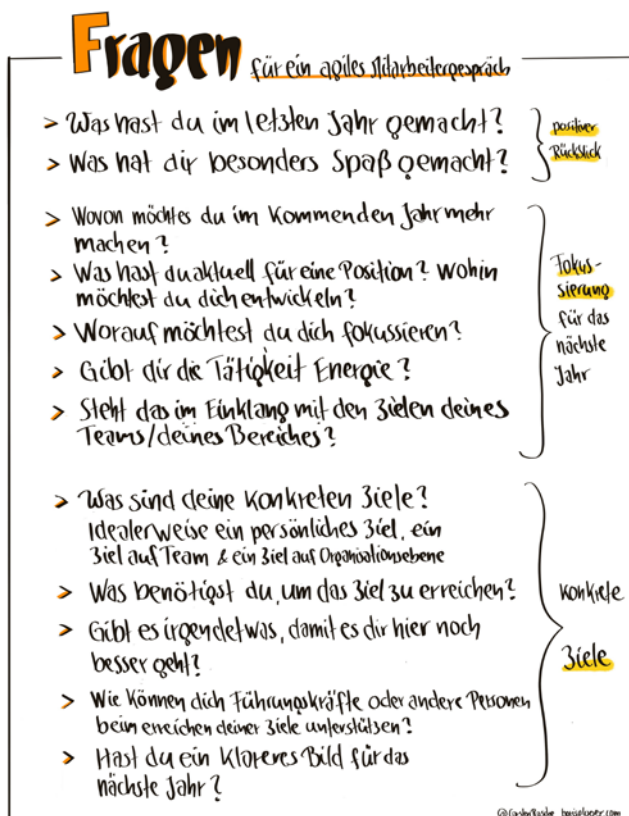 Fragen für ein agiles Mitarbeitergespräch
> Was hast du im letzten Jahr gemacht?
> Was hat dir besonders Spaß gemacht?
positiver
Rückblick
> Wovon möchtes du im Kommenden Jahr mehr
machen?
> Was hast du aktuell für eine Position? Wohin
möchtest du dich entwickeln?
> Worauf möchtest du dich fokussieren?
> Gibt dir die Tätigkeit Energie?
> Steht das im Einklang mit den Zielen deines
Teams/deines Bereiches?
Fokus-
sierung
für das
nächste
Jahr
> Was sind deine Konkreten Ziele?
Idealerweise ein persönliches Ziel, ein
Ziel auf Team & ein Ziel auf Organisationsebene
> Was benötigst du, um das Ziel zu erreichen?
> Gibt es irgendetwas, damit es dir hier noch
besser geht?
> Wie können dich Führungskräfte oder andere Personen
beim erreichen deiner Ziele unterstützen?
> Hast du ein Klareres Bild für das
nächste Jahr?
Konkrete
Ziele